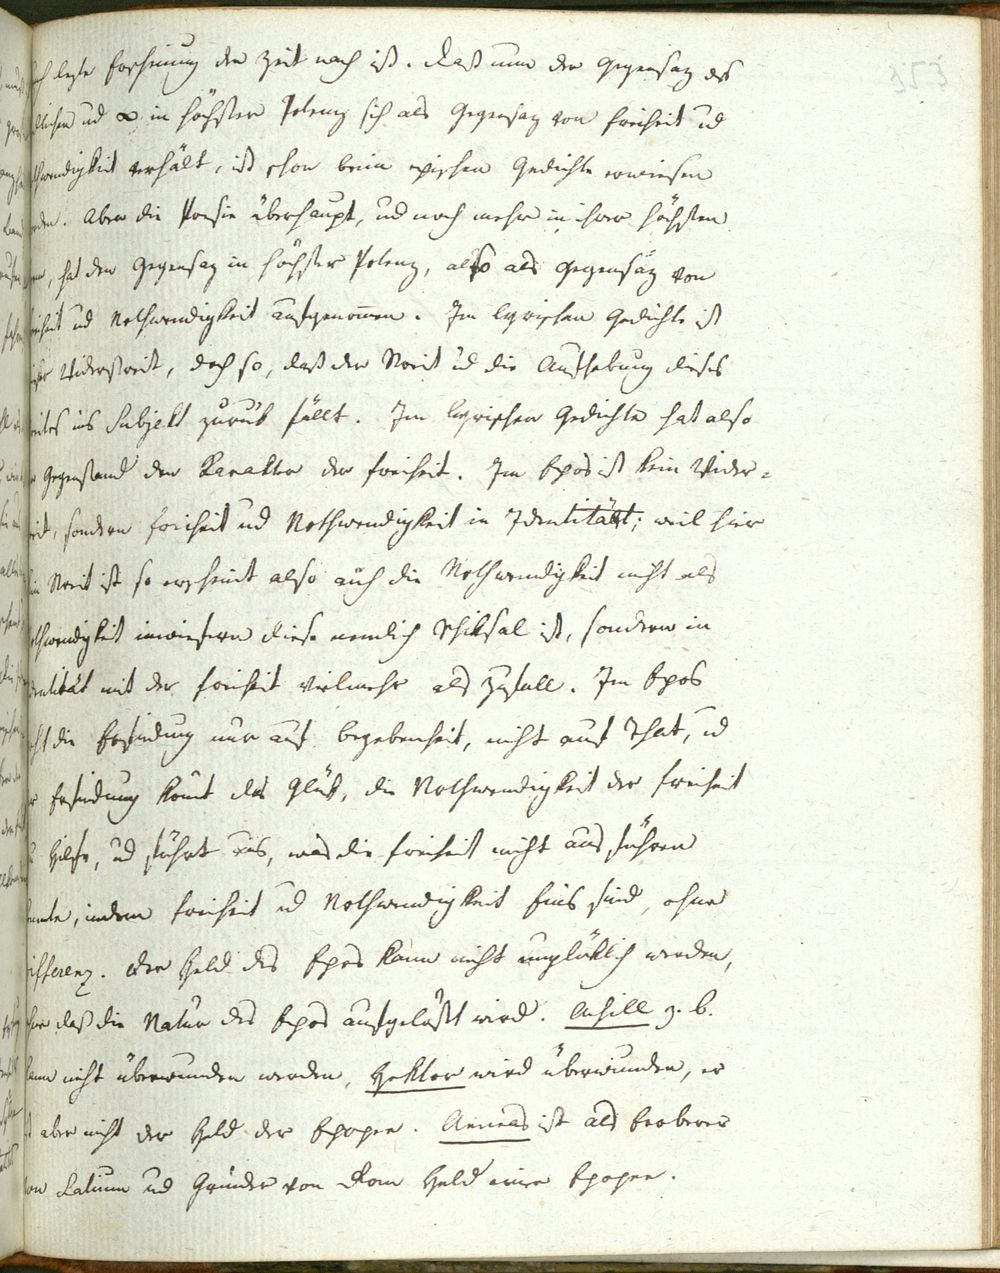 353
letzte Erscheinung der Zeit nach ist. Daß nun der Gegensaz des
dlichen ud ∞ in höchster Potenz sich als Gegensaz von Freiheit ud
thwendigkeit verhält, ist schon beim epischen Gedichte erwiesen
rden. Aber die Poesie überhaupt, ud noch mehr in ihrer höchsten
rm, hat den Gegensaz in höchster Potenz, also als Gegensaz von
eiheit ud Nothwendigkeit aufgenom̅en. Im lyrischen Gedichte ist
Widerstreit, doch so, daß der Streit ud die Aufhebung dieses
reites ins Subjekt zurük fällt. Im lyrischen Gedichte hat also
r Gegenstand den Karakter der Freiheit. Im Epos ist kein Wider-
reit, sondern Freiheit ud Nothwendigkeit in Identität; weil hier
in Streit ist so erscheint also auch die Nothwendigkeit nicht als
othwendigkeit inwiefern diese nemlich Schiksal ist, sondern in
dentität mit der Freiheit vielmehr als Zufall. Im Epos
eht die Erfindung nur auf Begebenheit, nicht auf That, ud
r Erfindung kom̅t das Glük, die Nothwendigkeit der Freiheit
u Hilfe, ud führt aus, was die Freiheit nicht aus führen
onnte, indem Freiheit ud Nothwendigkeit Eins sind, ohne
ifferenz. Der Held des Epos kann nicht unglüklich werden,
hne daß die Natur des Epos aufgelößt wird. Achill z. b.
kann nicht überwunden werden, Hektor wird überwunden, er
st aber nicht der Held der Epopee. Aeneas ist als Eroberer
von Latium ud Gründer von Rom Held einer Epopee.